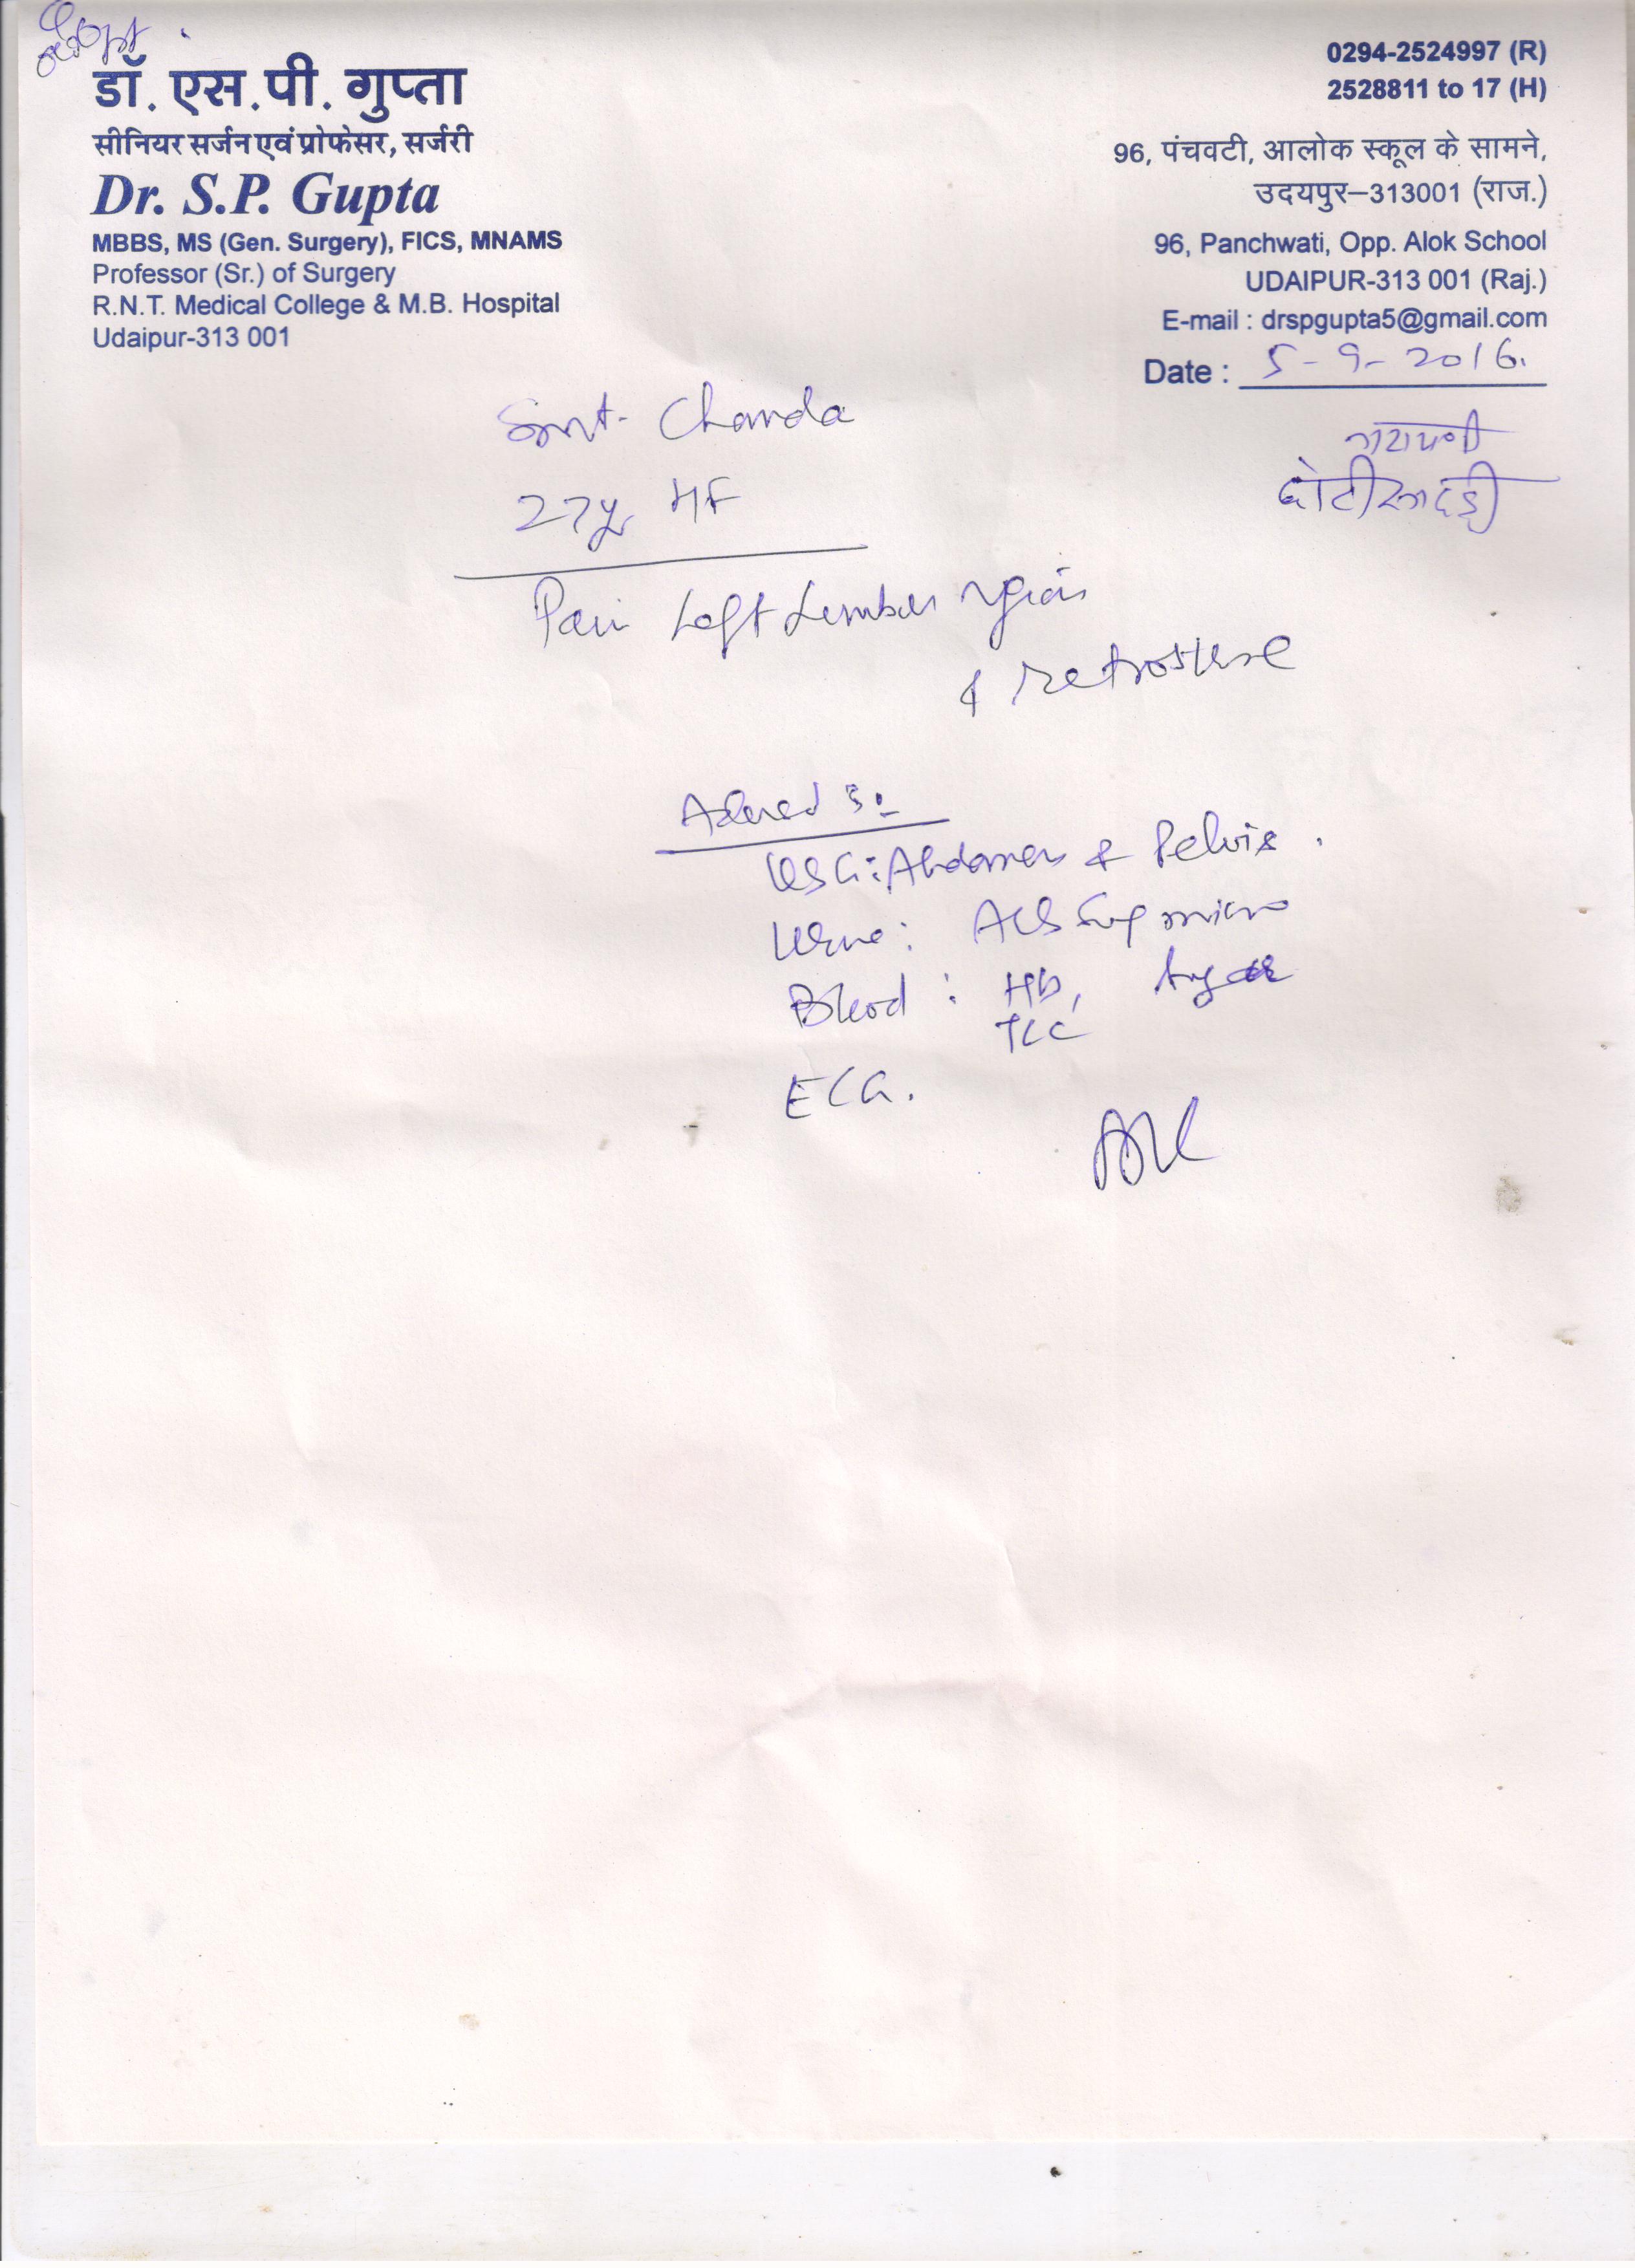 डॉ. एस.पी. गुप्ता
सीनियर सर्जन एवं प्रोफेसर, सर्जरी
Dr. S.P. Gupta
MBBS, MS (Gen. Surgery), FICS, MNAMS
Professor (Sr.) of Surgery
R.N.T. Medical College & M.B. Hospital
Udaipur-313 001
0294-2524997 (R)
2528811 to 17 (H)
96, पंचवटी, आलोक स्कूल के सामने,
उदयपुर–313001 (राज.)
96, Panchwati, Opp. Alok School
UDAIPUR-313 001 (Raj.)
E-mail : drspgupta5@gmail.com
Date : 5-9-2016.
छोटी सादड़ी
Smt. Chanda
27y HF
Pain Left Lumbar region
& retrosternal
Advised :-
USG: Abdomen & Pelvis.
Urine: Alb Sug micro
Blood : Hb, Sugar
TLC
ECG.